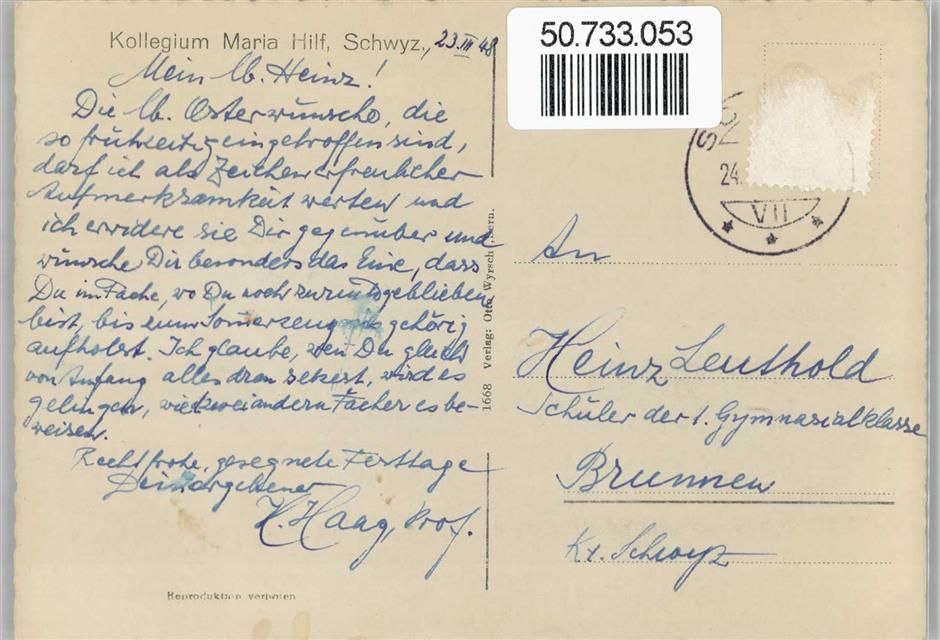 Kollegium Maria Hilf, Schwyz., 23.III 48
Mein lb. Heinz!
Die lb. Osterwünsche, die
so frühzeitig eingetroffen sind,
darf ich als Zeichen erfreulicher
Aufmerksamkeit werten und
ich erwidere sie Dir gegenüber und
wünsche Dir besonders das Eine, dass
Du im Fache, wo Du noch zurückgeblieben
bist, bis zum Somerzeugnis gehörig
aufholst. Ich glaube, wen Du gleich
von Anfang alles dran setzest, wird es
gelingen, wie zwei andern Fächer es be-
weisen.
Recht frohe, gesegnete Festtage
Dein ergebener
H. Haag, Prof.
Reproduktion verboten
1668 Verlag: Otto Wyrsch, Bern.
50.733.053
24.
VII
An
Heinz Leuthold
Schüler der 1. Gymnasialklasse
Brunnen
Kt. Schwyz